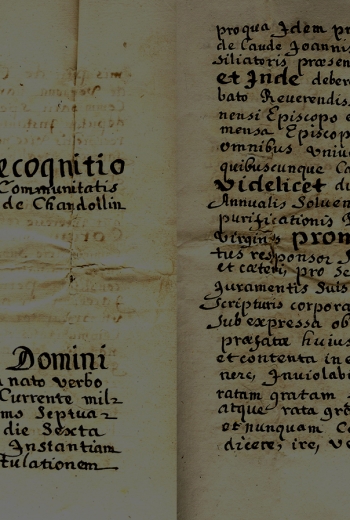 ecognitio
Communitatis
de Chandollin
Domini
nato verbo
Currente mil=
mo Septua=
die Sexta
Instantiam
tulationem
pro qua Idem pr
de Laude Joannis
siliatoris præsen
et Inde deber
bato Reverendis
nensi Episcopo e
mensa Episcop
omnibus Univ
quibuscunque Ca
Videlicet de
Annualis Solven
purificationis B
Virginis prom
tus responsor S
et cæteri, pro se
Juramentis Suis
Scripturis corpora
Sub expressa ob
præfatæ huius
et contenta in e
nere, Inviolab
ratam gratam
atque rata gra
et nunquam Co
dicere, ire, ve